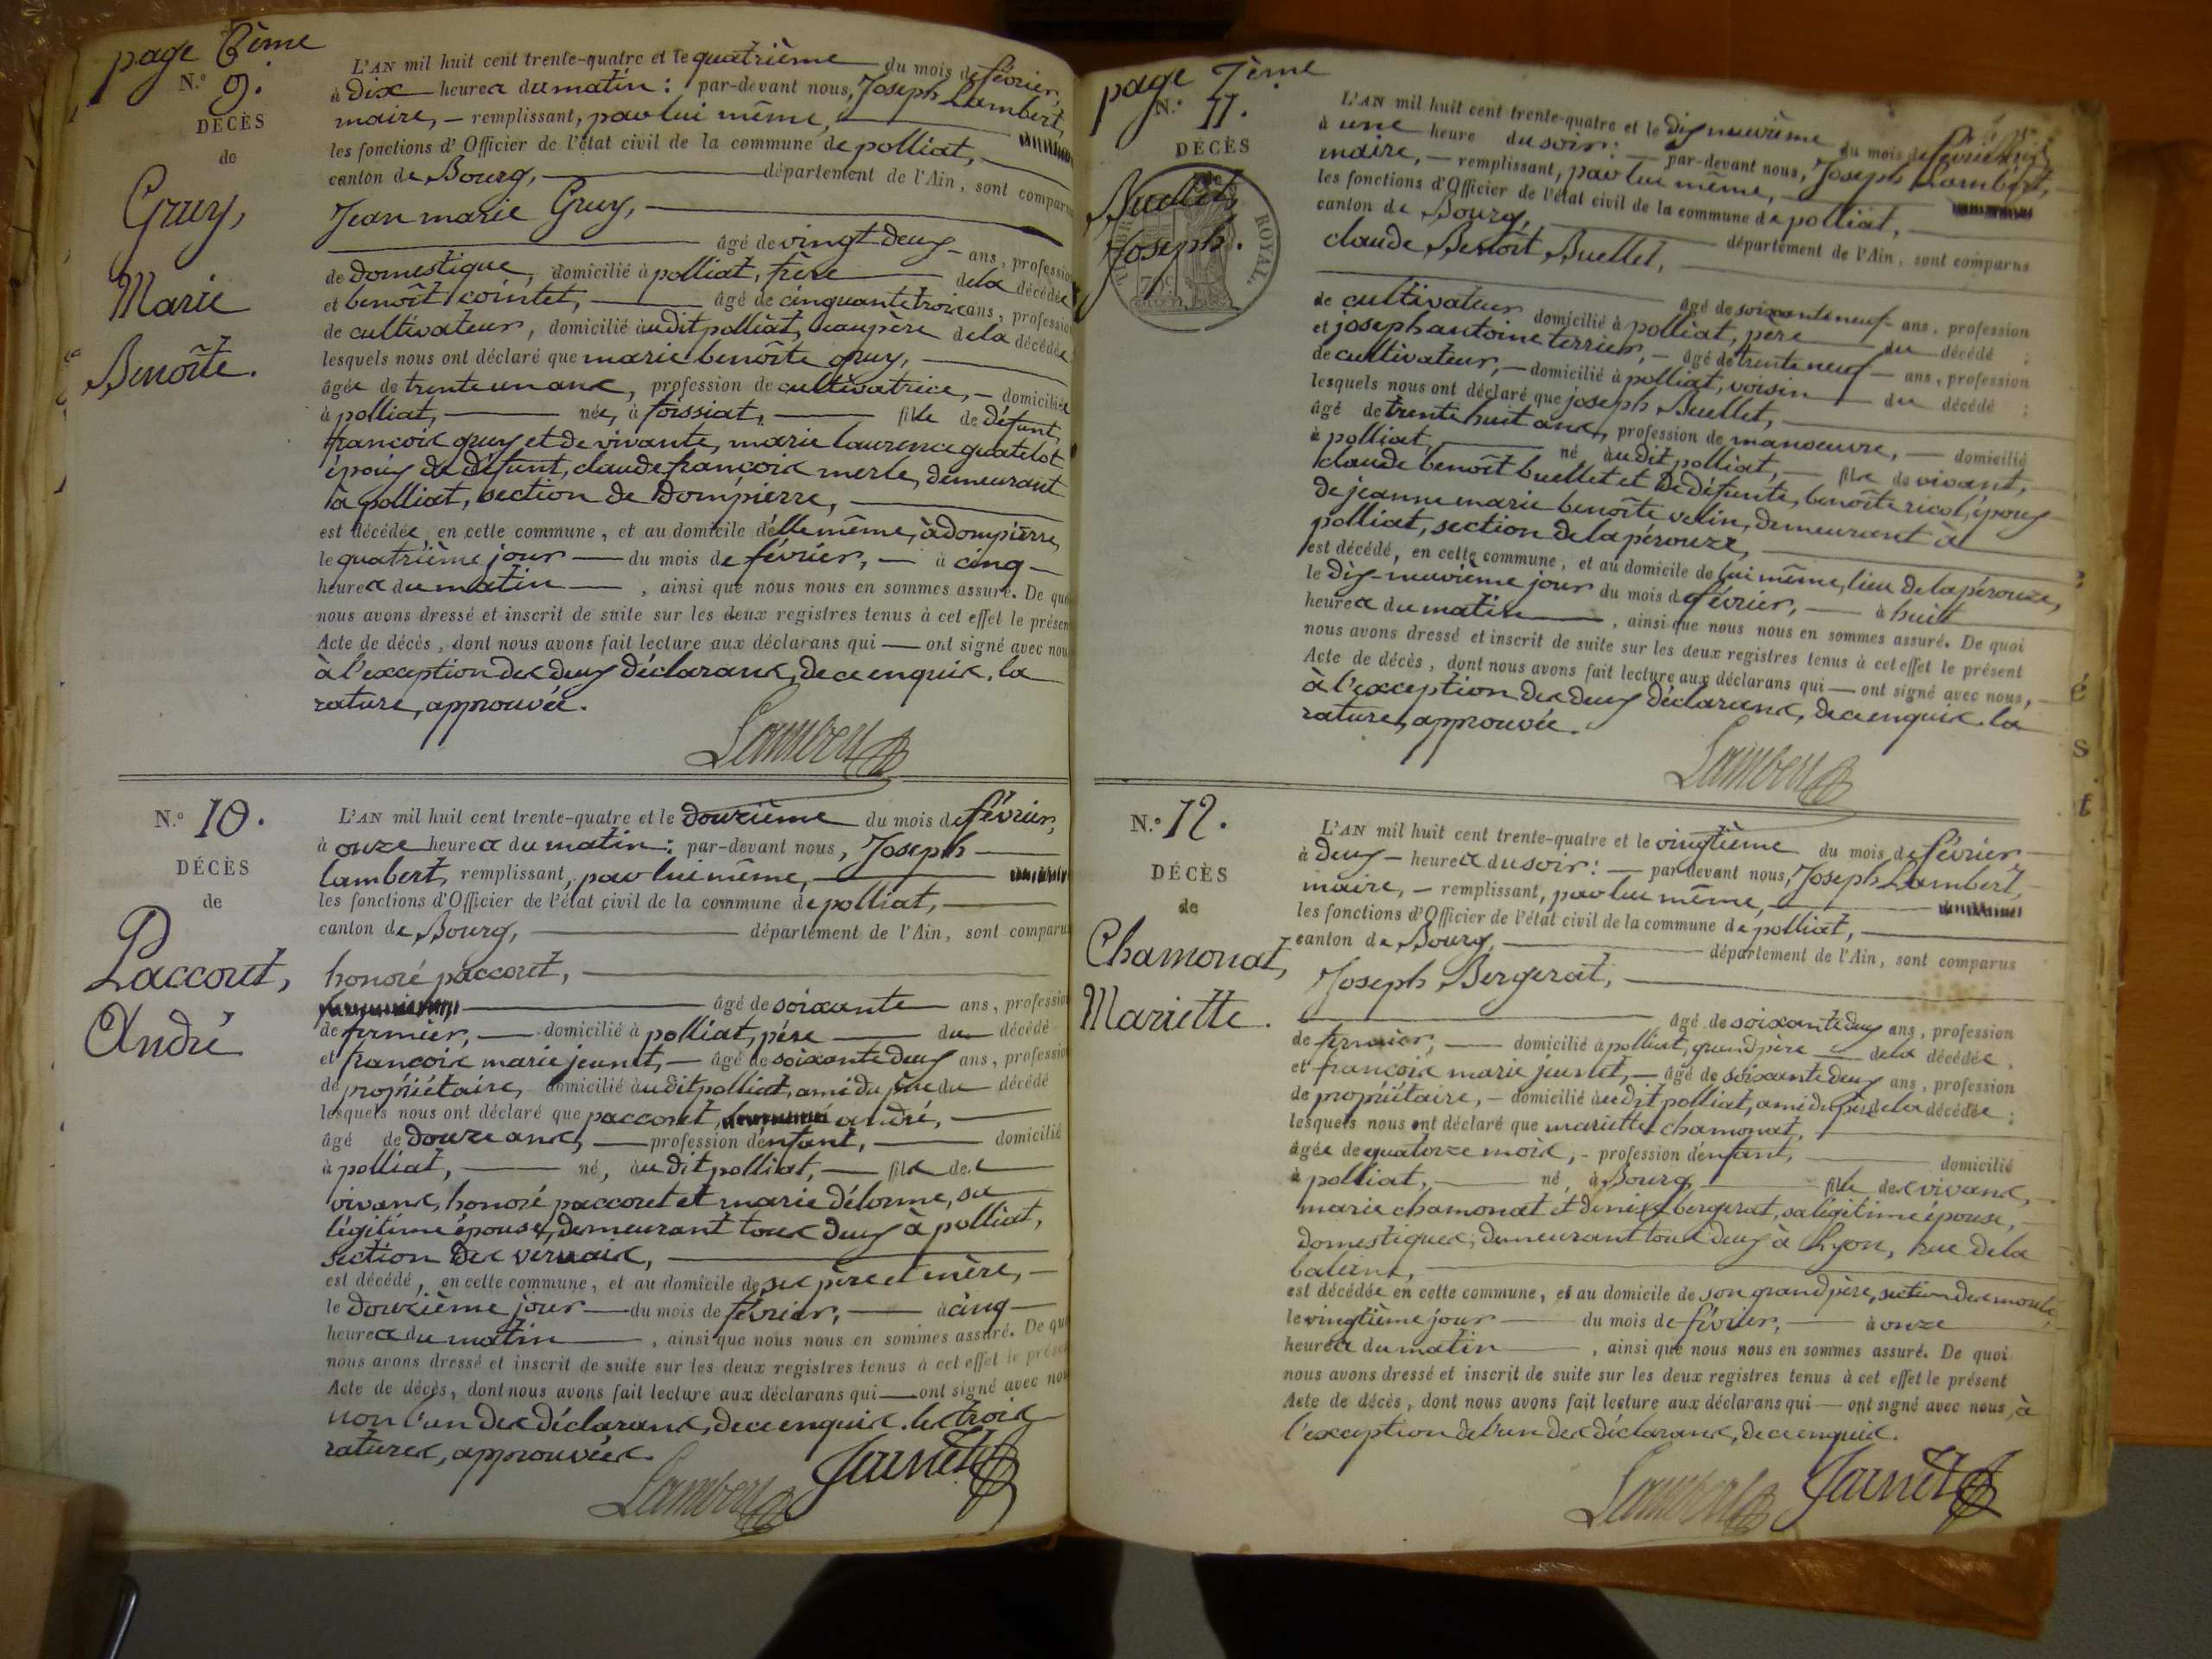 page 6ème
N.o 9.
DÉCÈS
de
Gruy,
Marie
Benoîte.
L'AN mil huit cent trente-quatre et le quatrième du mois de février,
à dix heures du matin: par-devant nous, Joseph Lambert,
maire, – remplissant, par lui même,
les fonctions d'Officier de l'état civil de la commune de polliat,
canton de Bourg, département de l'Ain, sont comparus
Jean marie Gruy,
âgé de vingt deux ans, profession
de domestique, domicilié à polliat, frère dela décédée
et benoît cointet, âgé de cinquante trois ans, profession
de cultivateur, domicilié audit polliat, beaupère dela décédée
lesquels nous ont déclaré que marie benoîte gruy,
âgée de trente un ans, profession de cultivatrice, domiciliée
à polliat, née, à foissiat, fille de défunt,
françois gruy et de vivante, marie laurence guatelot
époux de défunt, claude françois merle, demeurant
à polliat, section de Dompierre,
est décédée, en cette commune, et au domicile d'elle même, à dompierre,
le quatrième jour du mois de février, à cinq
heures du matin, ainsi que nous nous en sommes assuré. De quoi
nous avons dressé et inscrit de suite sur les deux registres tenus à cet effet le présent
Acte de décès, dont nous avons fait lecture aux déclarans qui ont signé avec nous
à l'exception des deux déclarans, de ce enquis. la
rature, approuvée.
Lambert
N.o 10.
DÉCÈS
de
Paccoret,
André
L'AN mil huit cent trente-quatre et le douzième du mois de février,
à onze heures du matin: par-devant nous, Joseph
Lambert, remplissant, par lui même,
les fonctions d'Officier de l'état civil de la commune de polliat,
canton de Bourg, département de l'Ain, sont comparus
honoré paccoret,
âgé de soixante ans, profession
de fermier, domicilié à polliat, père du décédé
et françois marie jeunet, âgé de soixante deux ans, profession
de propriétaire, domicilié audit polliat, ami du père du décédé
lesquels nous ont déclaré que paccoret andré,
âgé de douze ans, profession d'enfant, domicilié
à polliat, né, audit polliat, fils des
vivans, honoré paccoret et marie délorme, sa
légitime épouse, demeurant tous deux à polliat,
section des vernais,
est décédé, en cette commune, et au domicile de ses père et mère,
le douzième jour du mois de février, à cinq
heures du matin, ainsi que nous nous en sommes assuré. De quoi
nous avons dressé et inscrit de suite sur les deux registres tenus à cet effet le présent
Acte de décès, dont nous avons fait lecture aux déclarans qui ont signé avec nous
non l'un des déclarans, de ce enquis. les trois
ratures, approuvées.
Lambert Jeunet
page 7ème
N.o 11.
DÉCÈS
de
Buellet,
Joseph.
ROYAL.
L'AN mil huit cent trente-quatre et le dix neuvième du mois de février
à une heure du soir: par-devant nous, Joseph Lambert,
maire, – remplissant, par lui même,
les fonctions d'Officier de l'état civil de la commune de polliat,
canton de Bourg, département de l'Ain, sont comparus
claude Benoît Buellet,
âgé de soixante neuf ans, profession
de cultivateur domicilié à polliat, père du décédé ;
et joseph antoine terrier, âgé de trente neuf ans, profession
de cultivateur, domicilié à polliat, voisin du décédé ;
lesquels nous ont déclaré que joseph Buellet,
âgé de trente huit ans, profession de manoeuvre, domicilié
à polliat, né audit polliat, fils de vivant,
claude benoît buellet et de défunte, benoîte ricol, époux
de jeanne marie benoîte velin, demeurant à
polliat, section de la pérouze,
est décédé, en cette commune, et au domicile de lui même, lieu de la pérouze,
le dix-neuvième jour du mois de février, à huit
heures du matin, ainsi que nous nous en sommes assuré. De quoi
nous avons dressé et inscrit de suite sur les deux registres tenus à cet effet le présent
Acte de décès, dont nous avons fait lecture aux déclarans qui ont signé avec nous,
à l'exception des deux déclarans, de ce enquis. la
rature, approuvée.
Lambert
N.o 12.
DÉCÈS
de
Chamonat,
Mariette.
L'AN mil huit cent trente-quatre et le vingtième du mois de février
à deux heures du soir: par devant nous, Joseph Lambert,
maire, – remplissant, par lui même,
les fonctions d'Officier de l'état civil de la commune de polliat,
canton de Bourg, département de l'Ain, sont comparus
Joseph Bergerat,
âgé de soixante deux ans, profession
de fermier, domicilié à polliat, grand père dela décédée.
et françois marie jeunet, âgé de soixante deux ans, profession
de propriétaire, domicilié audit polliat, ami du père dela décédée ;
lesquels nous ont déclaré que mariette chamonat,
âgée de quatorze mois, profession d'enfant, domicilié
à polliat, né, à Bourg, fille des vivans,
marie chamonat et denise bergerat, sa légitime épouse,
domestiques, demeurant tous deux à Lyon, rue de la
est décédée en cette commune, et au domicile de son grand père, section des
le vingtième jour du mois de février, à onze
heures du matin, ainsi que nous nous en sommes assuré. De quoi
nous avons dressé et inscrit de suite sur les deux registres tenus à cet effet le présent
Acte de décès, dont nous avons fait lecture aux déclarans qui ont signé avec nous, à
l'exception de l'un des déclarans, de ce enquis.
Lambert Jeunet